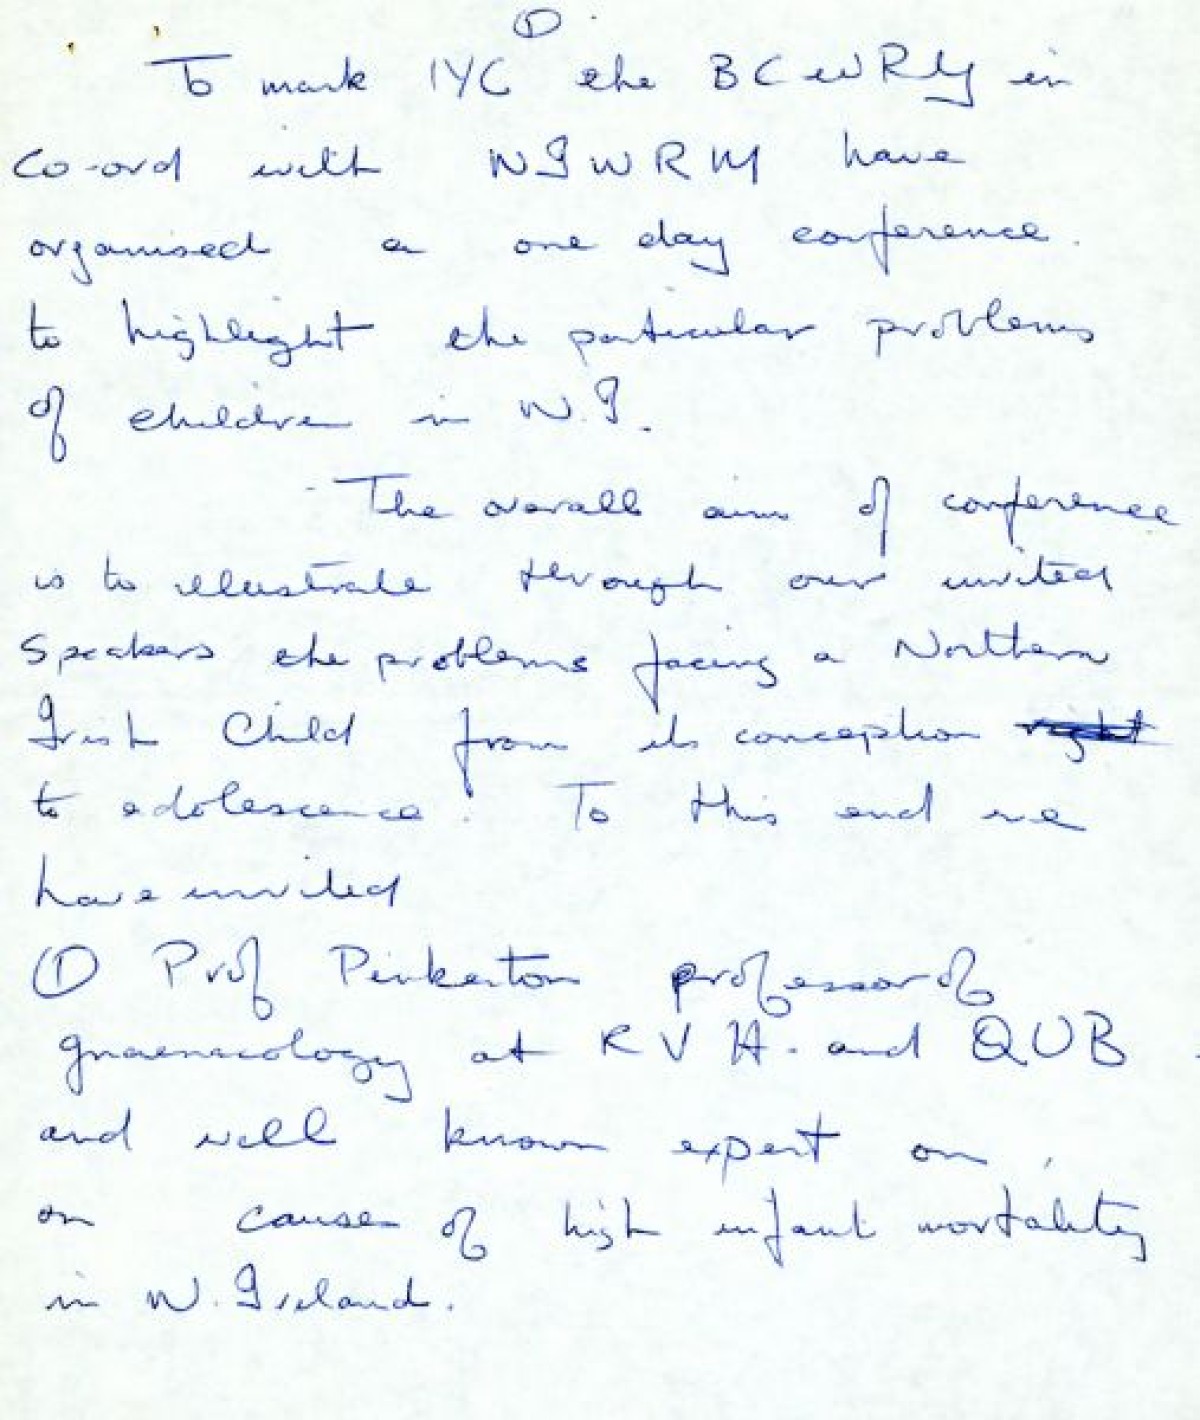 ①
To mark IYC the BCWRM in
Co-ord with NIWRM have
organised a one day conference.
to highlight the particular problems
of children in N.I.
The overall aim of conference
is to illustrate through our invited
Speakers the problems facing a Northern
Irish Child from its conception right
to adolescence. To this end we
have invited
① Prof Pinkerton professor of
gnaenacology at RVH. and QUB.
and well known expert on,
on causes of high infant mortality
in N. Ireland.